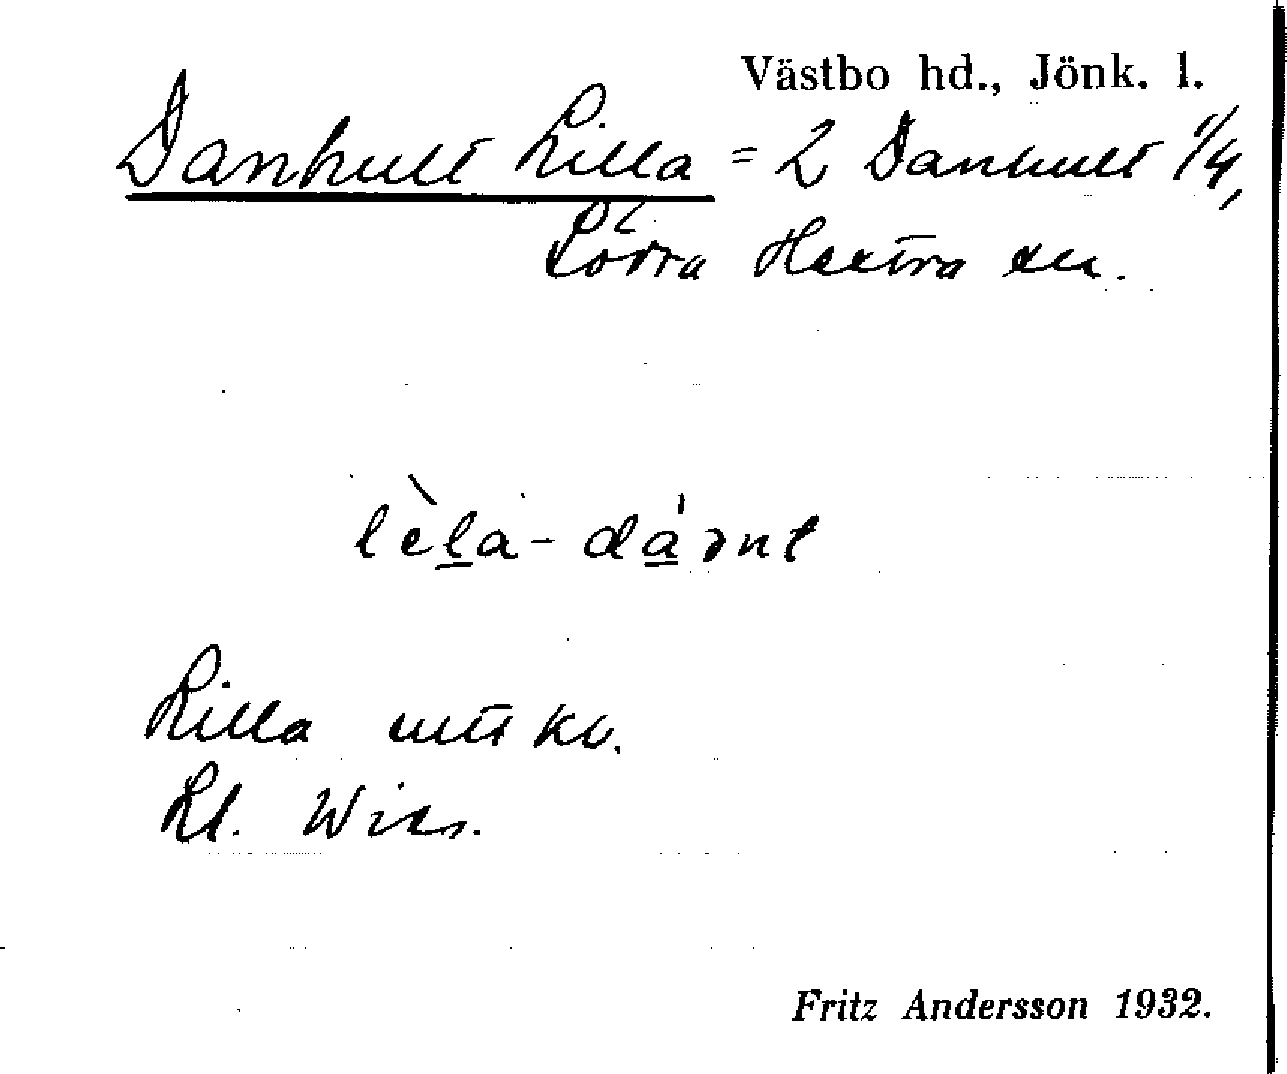 Västbo hd., Jönk. l.
Danhult Lilla = 2 Danhult 1/4,
Södra Hestra sn.
lèla-dánt
Lilla utt. kv.
Kl. Wiss.
Fritz Andersson 1932.